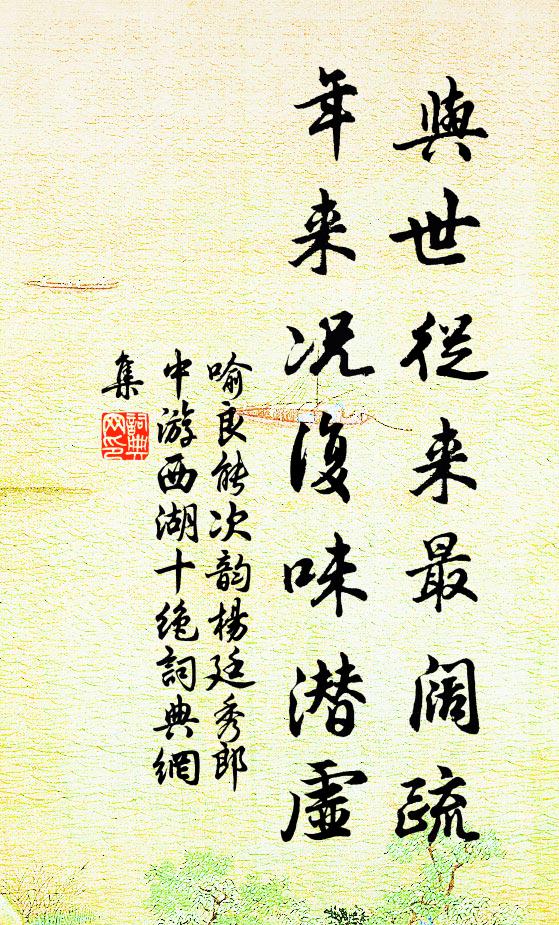 與世從来最阔疏
年来况復味潜虚
喻良能次韵楊廷秀郎
中游西湖十绝詞典網
集
詞典
网印